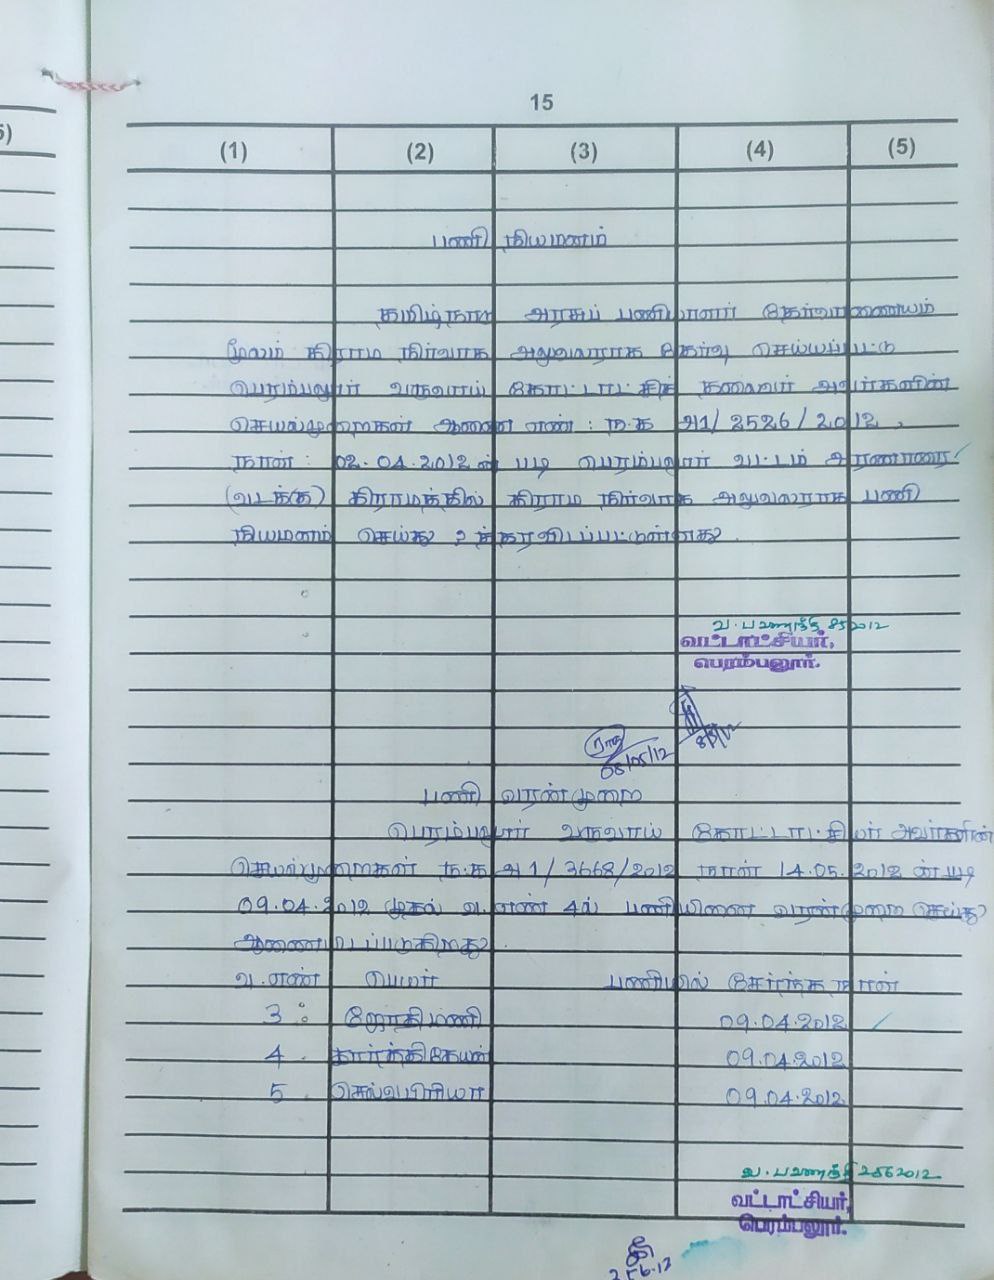 5)
15
(1) (2) (3) (4) (5)
பணி நியமனம்
தமிழ்நாடு அரசுப் பணியாளர் தேர்வாணையம்
மூலம் கிராம நிர்வாக அலுவலராக தேர்வு செய்யப்பட்டு
பெரம்பலூர் வருவாய் கோட்டாட்சித் தலைவர் அவர்களின்
செயல்முறைகள் ஆணை எண் : ந.க அ1/2526/2012,
நாள் : 02.04.2012 ன் படி பெரம்பலூர் வட்டம் அரணாரை
(வடக்கு) கிராமத்தில் கிராம நிர்வாக அலுவலராக பணி
நியமனம் செய்து உத்தரவிடப்பட்டுள்ளது.
8 5 2012
வட்டாட்சியர்,
பெரம்பலூர்.
8/5/12
08/05/12
பணி வரன்முறை
பெரம்பலூர் வருவாய் கோட்டாட்சியர் அவர்களின்
செயல்முறைகள் ந.க அ1/3668/2012 நாள் 14.05.2012 ன் படி
09.04.2012 முதல் வ.எண் 4ல் பணியினை வரன்முறை செய்து
ஆணையிடப்படுகிறது.
வ.எண் பெயர் பணியில் சேர்ந்த நாள்
3 ஜோதிமணி 09.04.2012
4 கார்த்திகேயன் 09.04.2012
5 செல்வபிரியா 09.04.2012
25 6 2012
வட்டாட்சியர்,
பெரம்பலூர்.